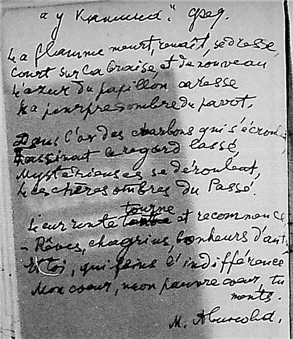 "У камина". фрг.
La flamme meurt, renaît, se dresse,
Court sur la braise, et de nouveau
L'azur du papillon caresse
La pourpre sombre du pavot.
Dans l'or des charbons qui s'écroulent,
Fascinant le regard lassé,
Mystérieuses se déroulent,
Les chères ombres du Passé.
tourne
Leur ronde et recommence
– Rêves, chagrins, bonheurs d'ant
Et toi, qui feins l'indifférence
Mon coeur, mon pauvre coeur, tu
ments.
M.